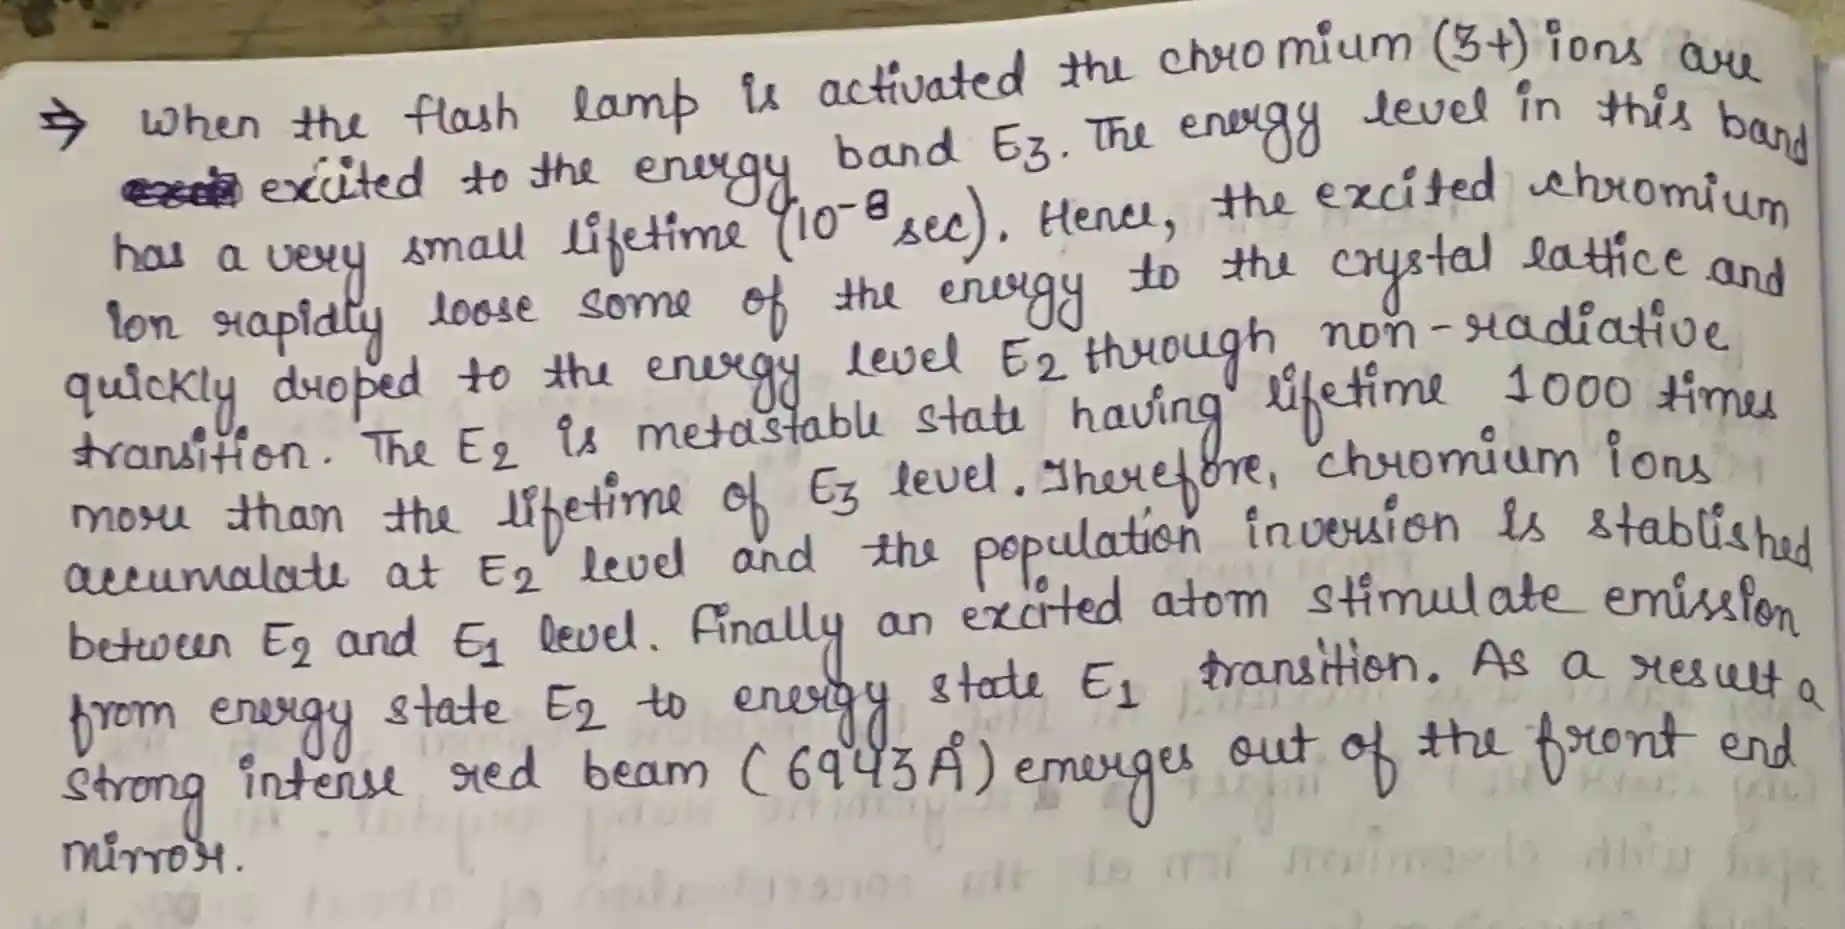 ⇒ When the flash lamp is activated the chromium (3+) ions are
excited to the energy band E3. The energy level in this band
has a very small lifetime (10⁻⁸ sec). Hence, the excited chromium
ion rapidly loose some of the energy to the crystal lattice and
quickly droped to the energy level E2 through non-radiative
transition. The E2 is metastable state having lifetime 1000 times
more than the lifetime of E3 level. Therefore, chromium ions
accumalate at E2 level and the population inversion is stablished
between E2 and E1 level. Finally an excited atom stimulate emission
from energy state E2 to energy state E1 transition. As a result a
strong intense red beam (6943 Å) emerges out of the front end
mirror.